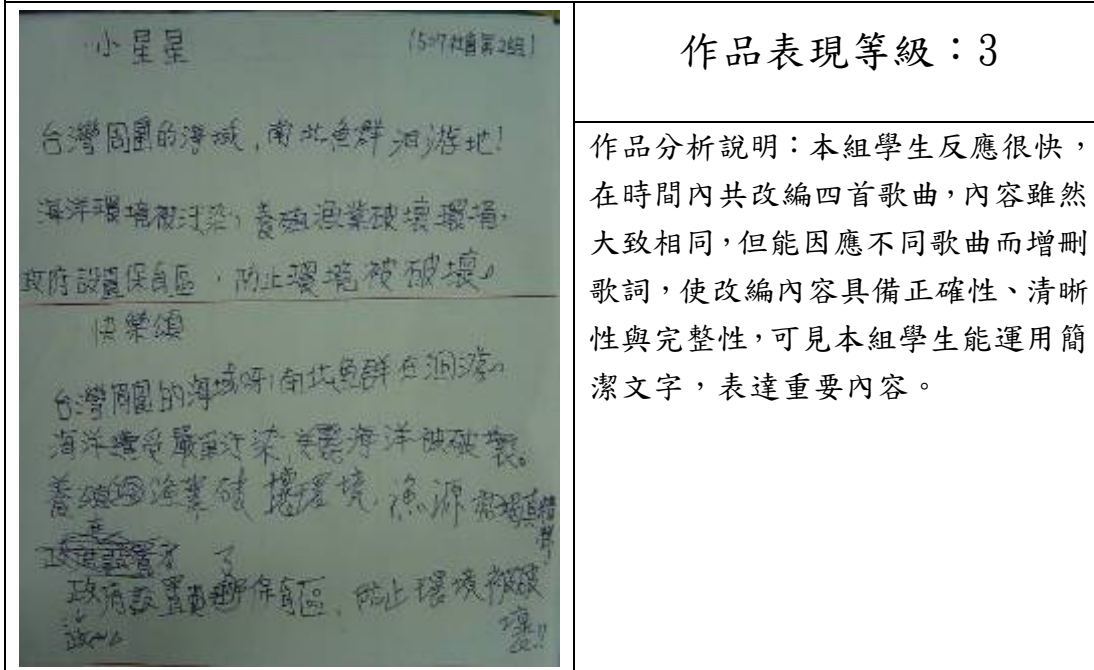 小星星
台灣周圍的海域，南北魚群洄游地！
海洋環境被汙染，養殖漁業破壞環境，
政府設置保育區，防止環境被破壞。
快樂頌
台灣周圍的海域呀，南北魚群在洄游。
海洋遭受嚴重汙染，海洋被破壞。
養殖漁業破壞環境，漁源枯竭真糟糕
政府設置了保育區，防止環境被破壞!!
作品表現等級：3
作品分析說明：本組學生反應很快，
在時間內共改編四首歌曲，內容雖然
大致相同，但能因應不同歌曲而增刪
歌詞，使改編內容具備正確性、清晰
性與完整性，可見本組學生能運用簡
潔文字，表達重要內容。